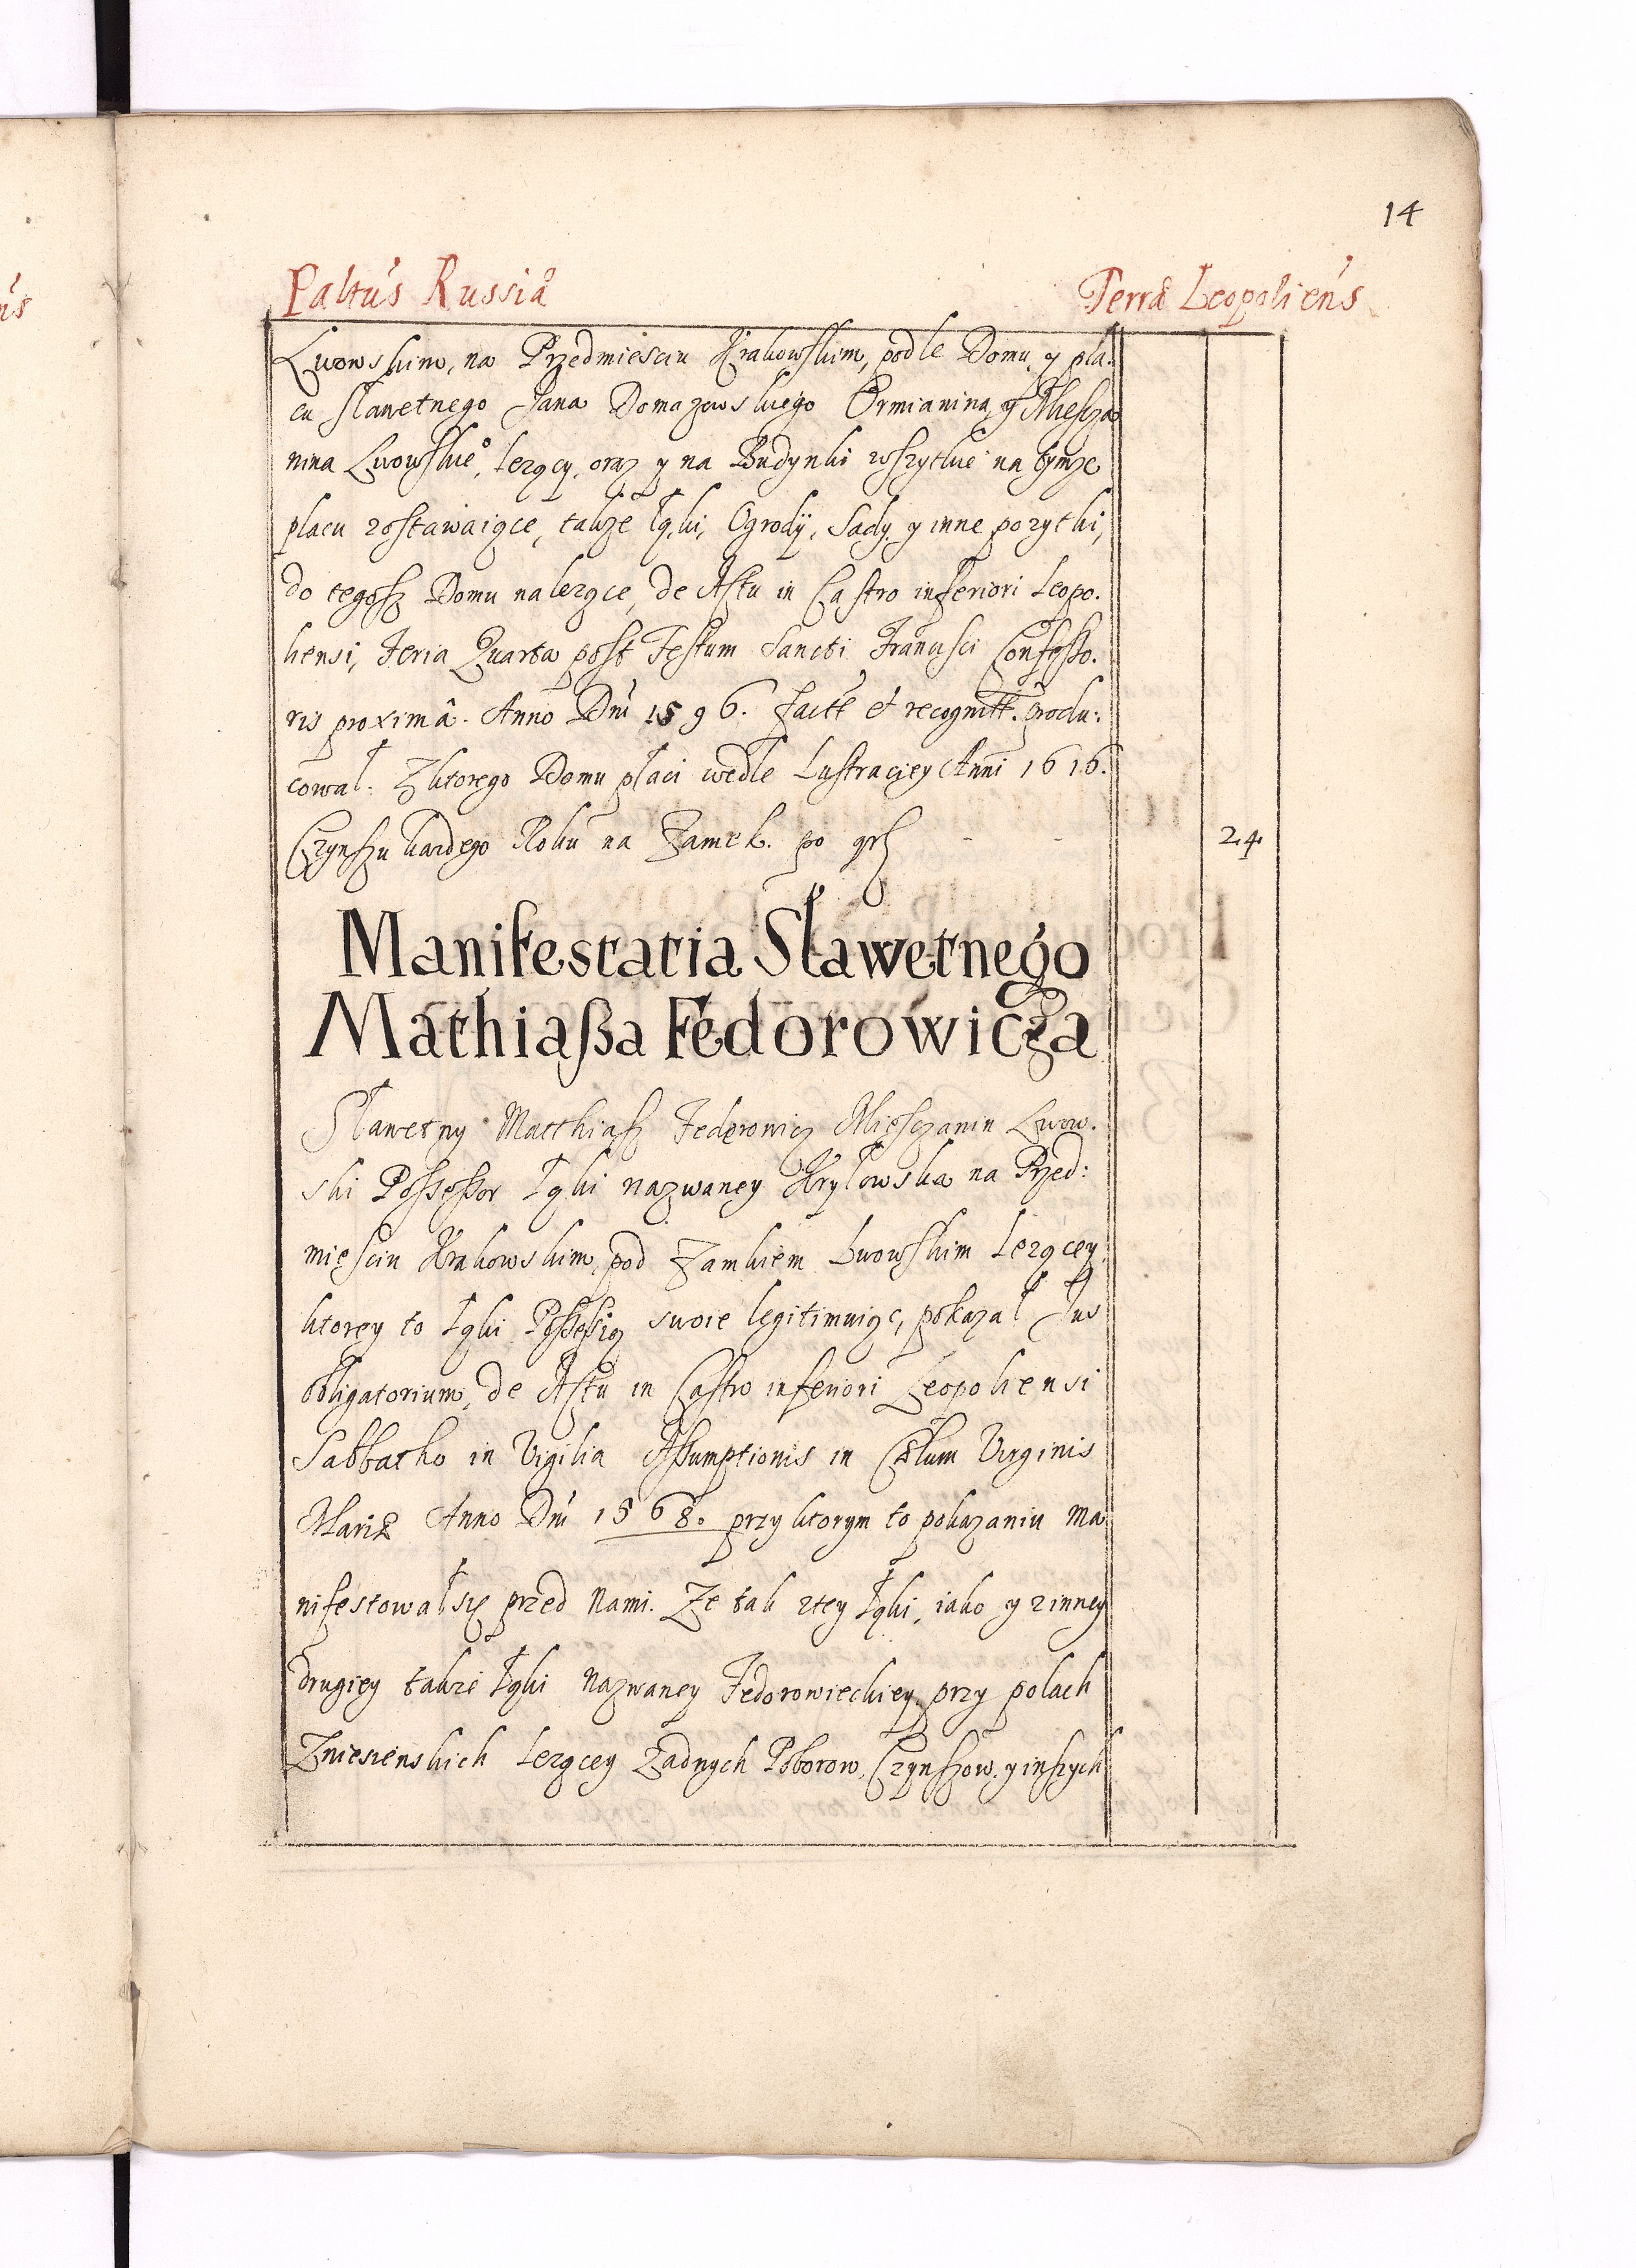 14
Palt̃us Russiæ Terræ Leopolieñs
Lwowskim, na Przedmiesciu Krakowskim, podle Domu, y pla-
cu sławetnego Jana Domazewskiego Ormianina, y Miescza
nina Lwowskie͠o, lezący, oraz y na Budynki wszytkie na tymze
placu zostawaiące, takze łąki, Ogrody, Sady, y inne pozytki,
do tegosz Domu nalezące, de Actu in Castro inferiori Leopo-
liensi, Feria Quarta post Festum Sancti Francisci Confesso-
ris proximâ. Anno Dnĩ 1596. factẽ et recognitẽ. produ:
cował: Z ktorego Domu płaci wedle Lustraciey Anni 1616.
Czynszu kazdego Roku na Zamek. po grſ - - 24
Manifestatia Sławetnego
Mathiaßa Fedorowicza
Sławetny Matthiasz Fedorowicz Miesczanin Lwow-
ski Possessor Łąki nazwaney Kryłowska na Przed:
miesciu Krakowskim, pod Zamkiem Lwowskim Lezącey,
ktorey to Łąki Possessią swoie legitimuiąc, pokazał Jus
obligatorium, de Actu in Castro inferiori Leopoliensi
Sabbatho in Vigilia Assumptionis in Cælum Virginis
Mariæ Anno Dnĩ 1568. przy ktorym to pokazaniu Ma
nifestował się przed Nami. Ze tak z tey Łąki, iako y z inney
drugiey takze Łąki Nazwaney Fedorowieckiey, przy polach
Zniesienskich Lezącey Zadnych Poborow, Czynszow, y inszych